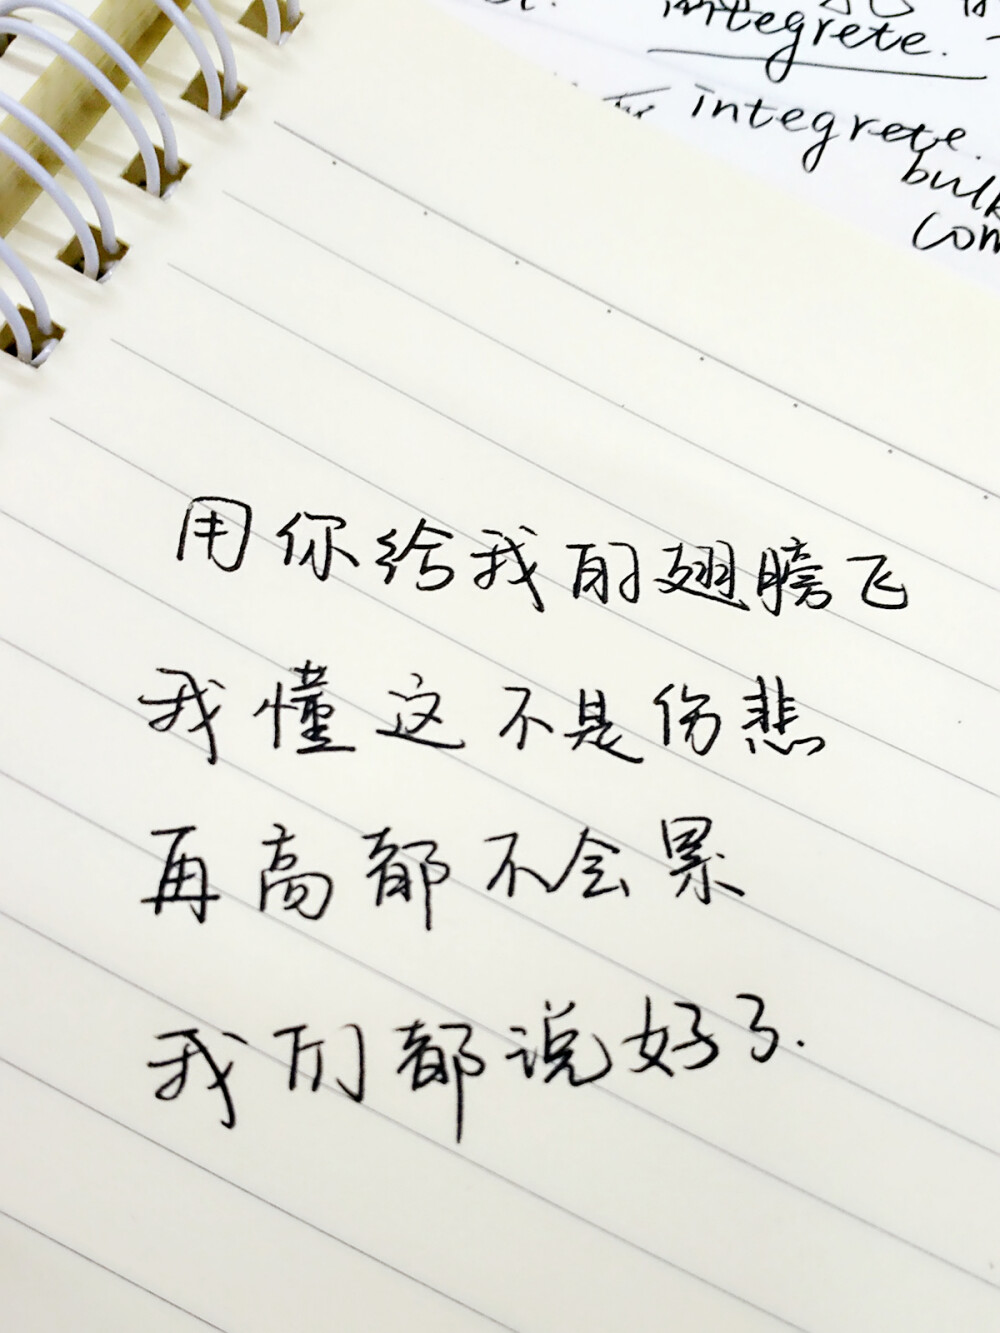 integrete.
integrete.
用你给我的翅膀飞
我懂这不是伤悲
再高都不会累
我们都说好了.